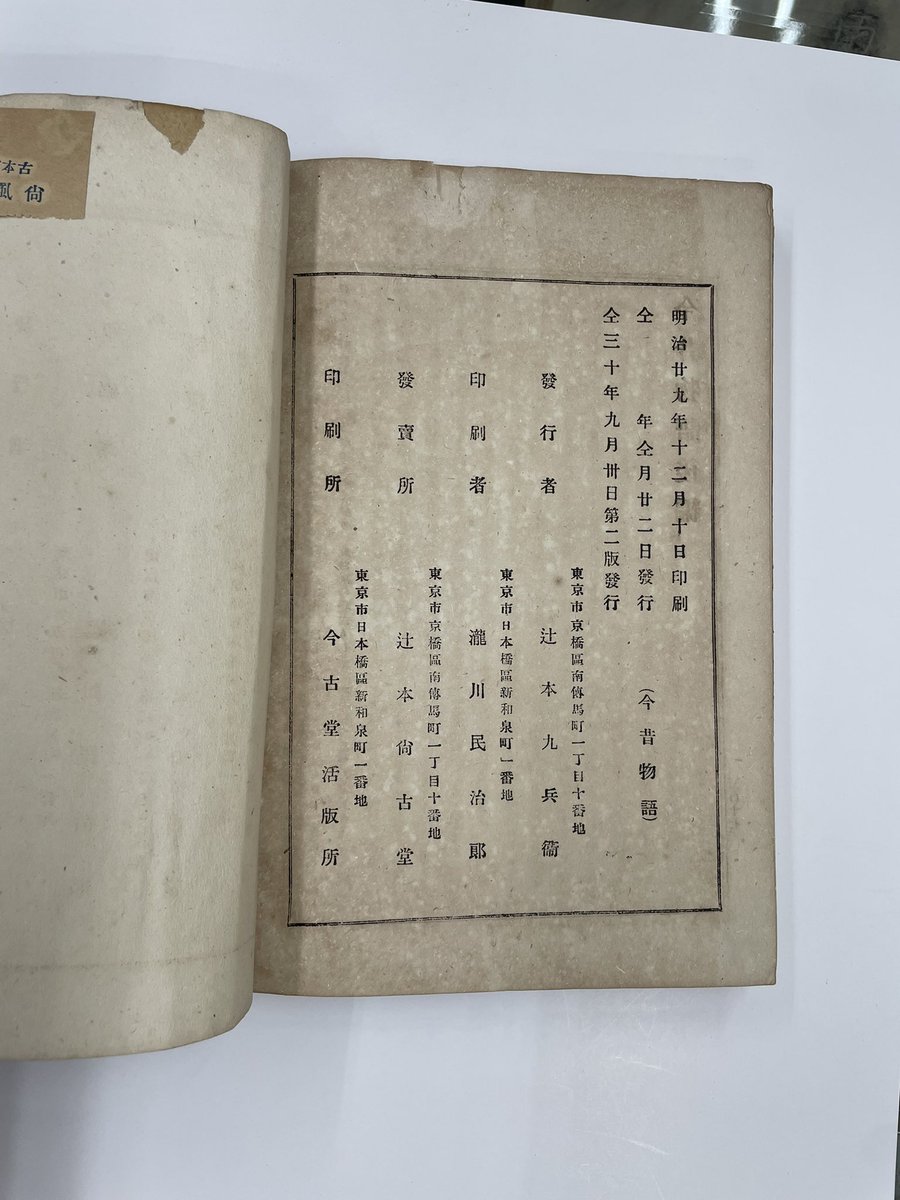 明治廿九年十二月十日印刷
仝 年仝月廿二日發行
(今昔物語)
仝三十年九月卅日第二版發行
東京市京橋區南傳馬町一丁目十番地
發行者 辻本九兵衞
東京市日本橋區新和泉町一番地
印刷者 瀧川民治郎
東京市京橋區南傳馬町一丁目十番地
發賣所 辻本尙古堂
東京市日本橋區新和泉町一番地
印刷所 今古堂活版所
古本
尙風